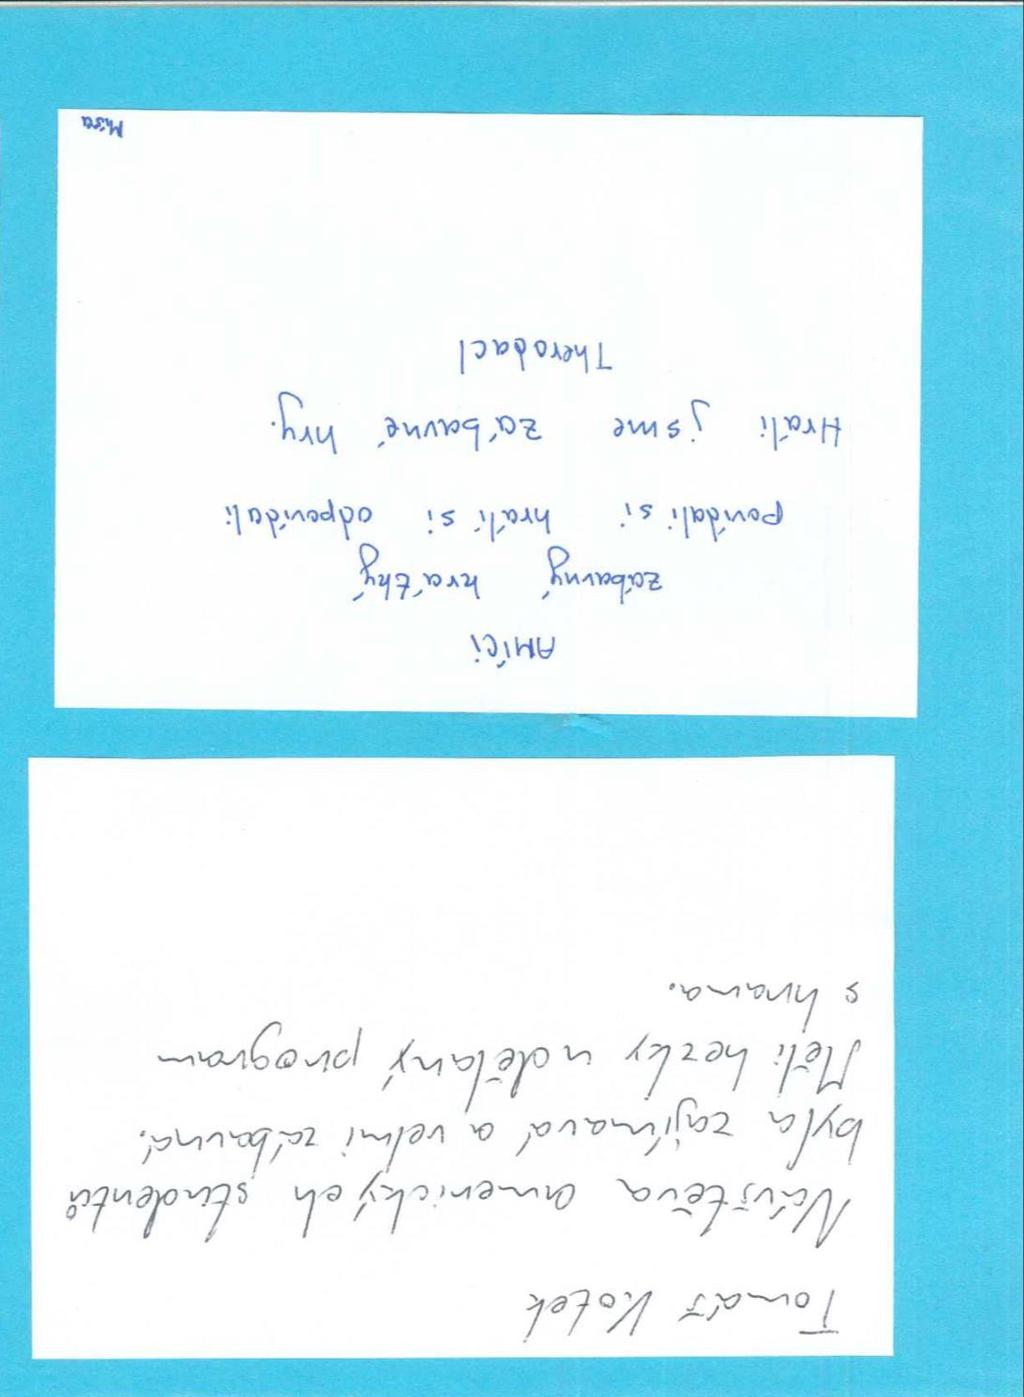 Tomáš Kotek
Návštěva amerických studentů
byla zajímavá a velmi zábavná.
Měli hezky udělaný program
s hrama.
AMíci
zábavný hrátký
povídali si hráli si odpovídali
Hráli jsme zábavné hry.
Therobacl
Míša